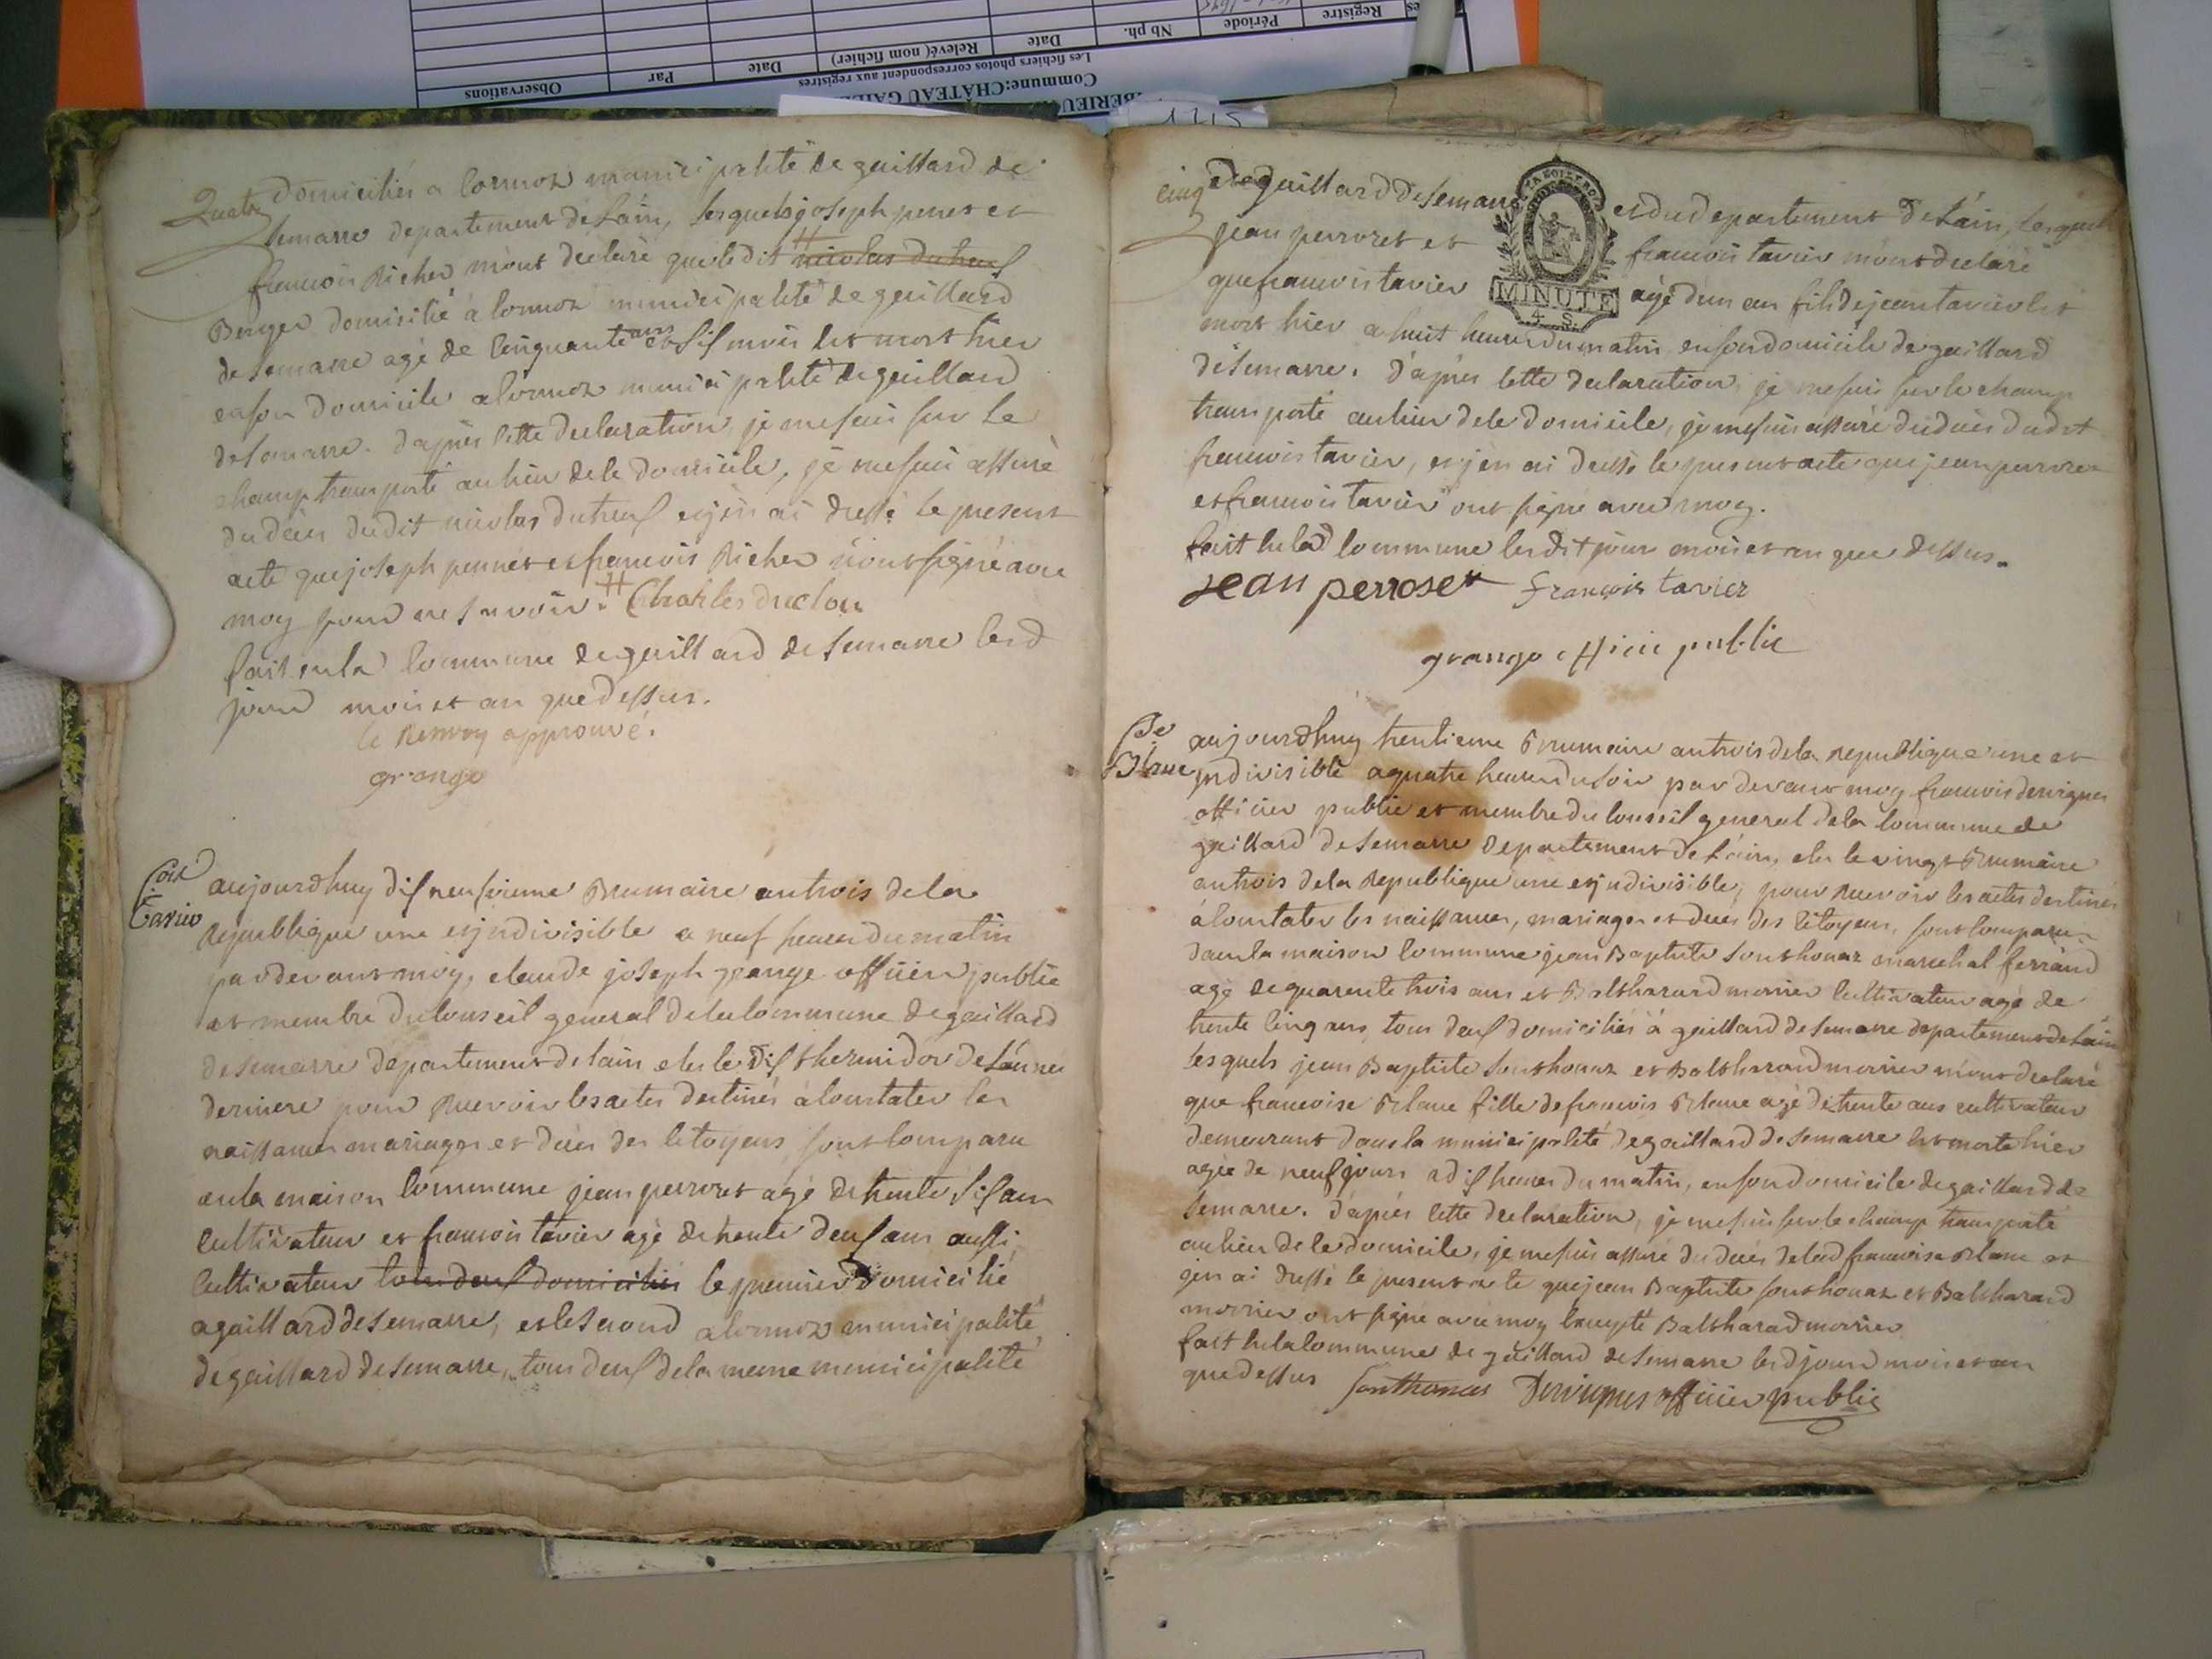 Observations
Par
Date
Relevé( nom fichier)
Date
Nb ph.
Période
Registre
Les fichiers photos correspondent aux registres
Commune:CHÂTEAU GAIL
BERIEU
Quatre
domiciliés a cormoz municipalité de gaillard de
semarre departement de L'ain, lesquels joseph perret et
francois Richer m'ont declaré que ledit nicolas dutreuf
Berger domicilié à cormoz municipalité de gaillard
de semarre agé de cinquante ans et six mois est mort hier
en son domicile a cormoz municipalité de gaillard
de semarre. d'apres cette declaration je me suis sur le
champ transporté au lieu de ce domicile, je me suis assuré
du déces dudit nicolas dutreuf et j'en ai dressé le present
acte que joseph perret et francois Richer n'ont signé avec
moy pour ne savoir. # Charles duclou
fait en la commune de gaillard de semarre lesd
jour mois et an que dessus.
le Renvoy approuvé.
grange
Tavier
aujourdhuy dix neuvieme Brumaire an trois de la
Republique une et jndivisible a neuf heures du matin
par devant moy, claude joseph grange officier public
et membre du conseil general de la commune de gaillard
de semarre departement de lain elu le dix thermidor de L'année
derniere pour Recevoir les actes destinés à constater les
naissances mariages et déces des citoyens, sont comparu
en la maison commune jean perroset agé de trente six ans
cultivateur et francois tavier agé de trente deux ans aussi
cultivateur tous deux domiciliés le premier domicilié
a gaillard de semarre, et le second a cormoz municipalité
de gaillard de semarre, tous deux de la meme municipalité
cinq
de gaillard de semarre et du departement de L'ain, lesquels
jean perroset et francois tavier m'ont declaré
que francois tavier agé d'un an fils de jean tavier est
MINUTE
4. S.
mort hier a huit heures du matin en son domicile de gaillard
de semarre. d'apres cette declaration, je me suis sur le champ
transporté au lieu de ce domicile, je me suis assuré du déces dudit
francois tavier, et j'en ai dressé le present acte que jean perroset
et francois tavier ont signé avec moy.
fait en lad commune lesdit jour mois et an que dessus.
jean perroset francois tavier
grange officie public
De
Blanc
aujourdhuy trentieme Brumaire an trois de la Republique une et
jndivisible a quatre heures du soir par devant moy francois dervignes
officier public et membre du conseil general de la commune de
gaillard de semarre departement de L'ain, elu le vingt Brumaire
an trois de la Republique une et jndivisible, pour Recevoir les actes destinés
à constater les naissances, mariages et déces des citoyens, sont comparu
dans la maison commune jean Baptiste sonthonax marechal ferrand
agé de quarente trois ans et Balthazard morrier cultivateur agé de
trente cinq ans, tous deux domiciliés à gaillard de semarre departement de L'ain
lesquels jean Baptiste sonthonax et Balthazard morrier m'ont declaré
que francoise Blanc fille de francois Blanc agé de trente ans cultivateur
demeurant dans la municipalité de gaillard de semarre est morte hier
agée de neuf jours a dix heures du matin, en son domicile de gaillard de
semarre. d'apres cette declaration, je me suis sur le champ transporté
au lieu de ce domicile, je me suis assuré du déces de lad francoise Blanc et
j'en ai dressé le present acte que jean Baptiste sonthonax et Balthazard
morrier ont signé avec moy excepté Balthazard morrier
fait en la commune de gaillard de semarre lesd jour mois et an
que dessus Sonthonax Dervignes officier public